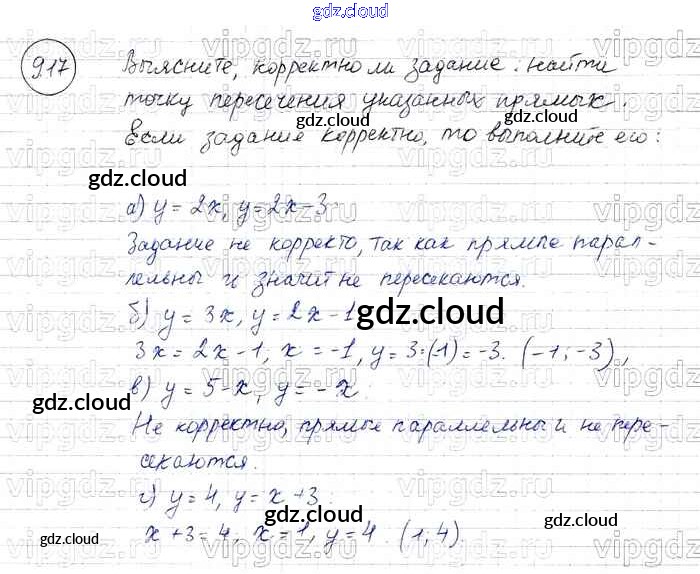 gdz.cloud
917 Выясните, корректно ли задание: найти
точку пересечения указанных прямых.
gdz.cloud
Если задание корректно, то выполните его:
gdz.cloud gdz.cloud
а) y = 2x, y = 2x - 3
Задание не корректо, так как прямые парал-
лельны и значит не пересекаются.
б) y = 3x, y = 2x - 1 gdz.cloud
3x = 2x - 1, x = -1, y = 3·(-1) = -3. (-1; -3),
в) y = 5 - x, y = -x.
gdz.cloud gdz.cloud
Не корректно, прямые параллельны и не пере-
секаются.
г) y = 4, y = x + 3.
gdz.cloud
x + 3 = 4, x = 1, y = 4. (1; 4).
gdz.cloud gdz.cloud